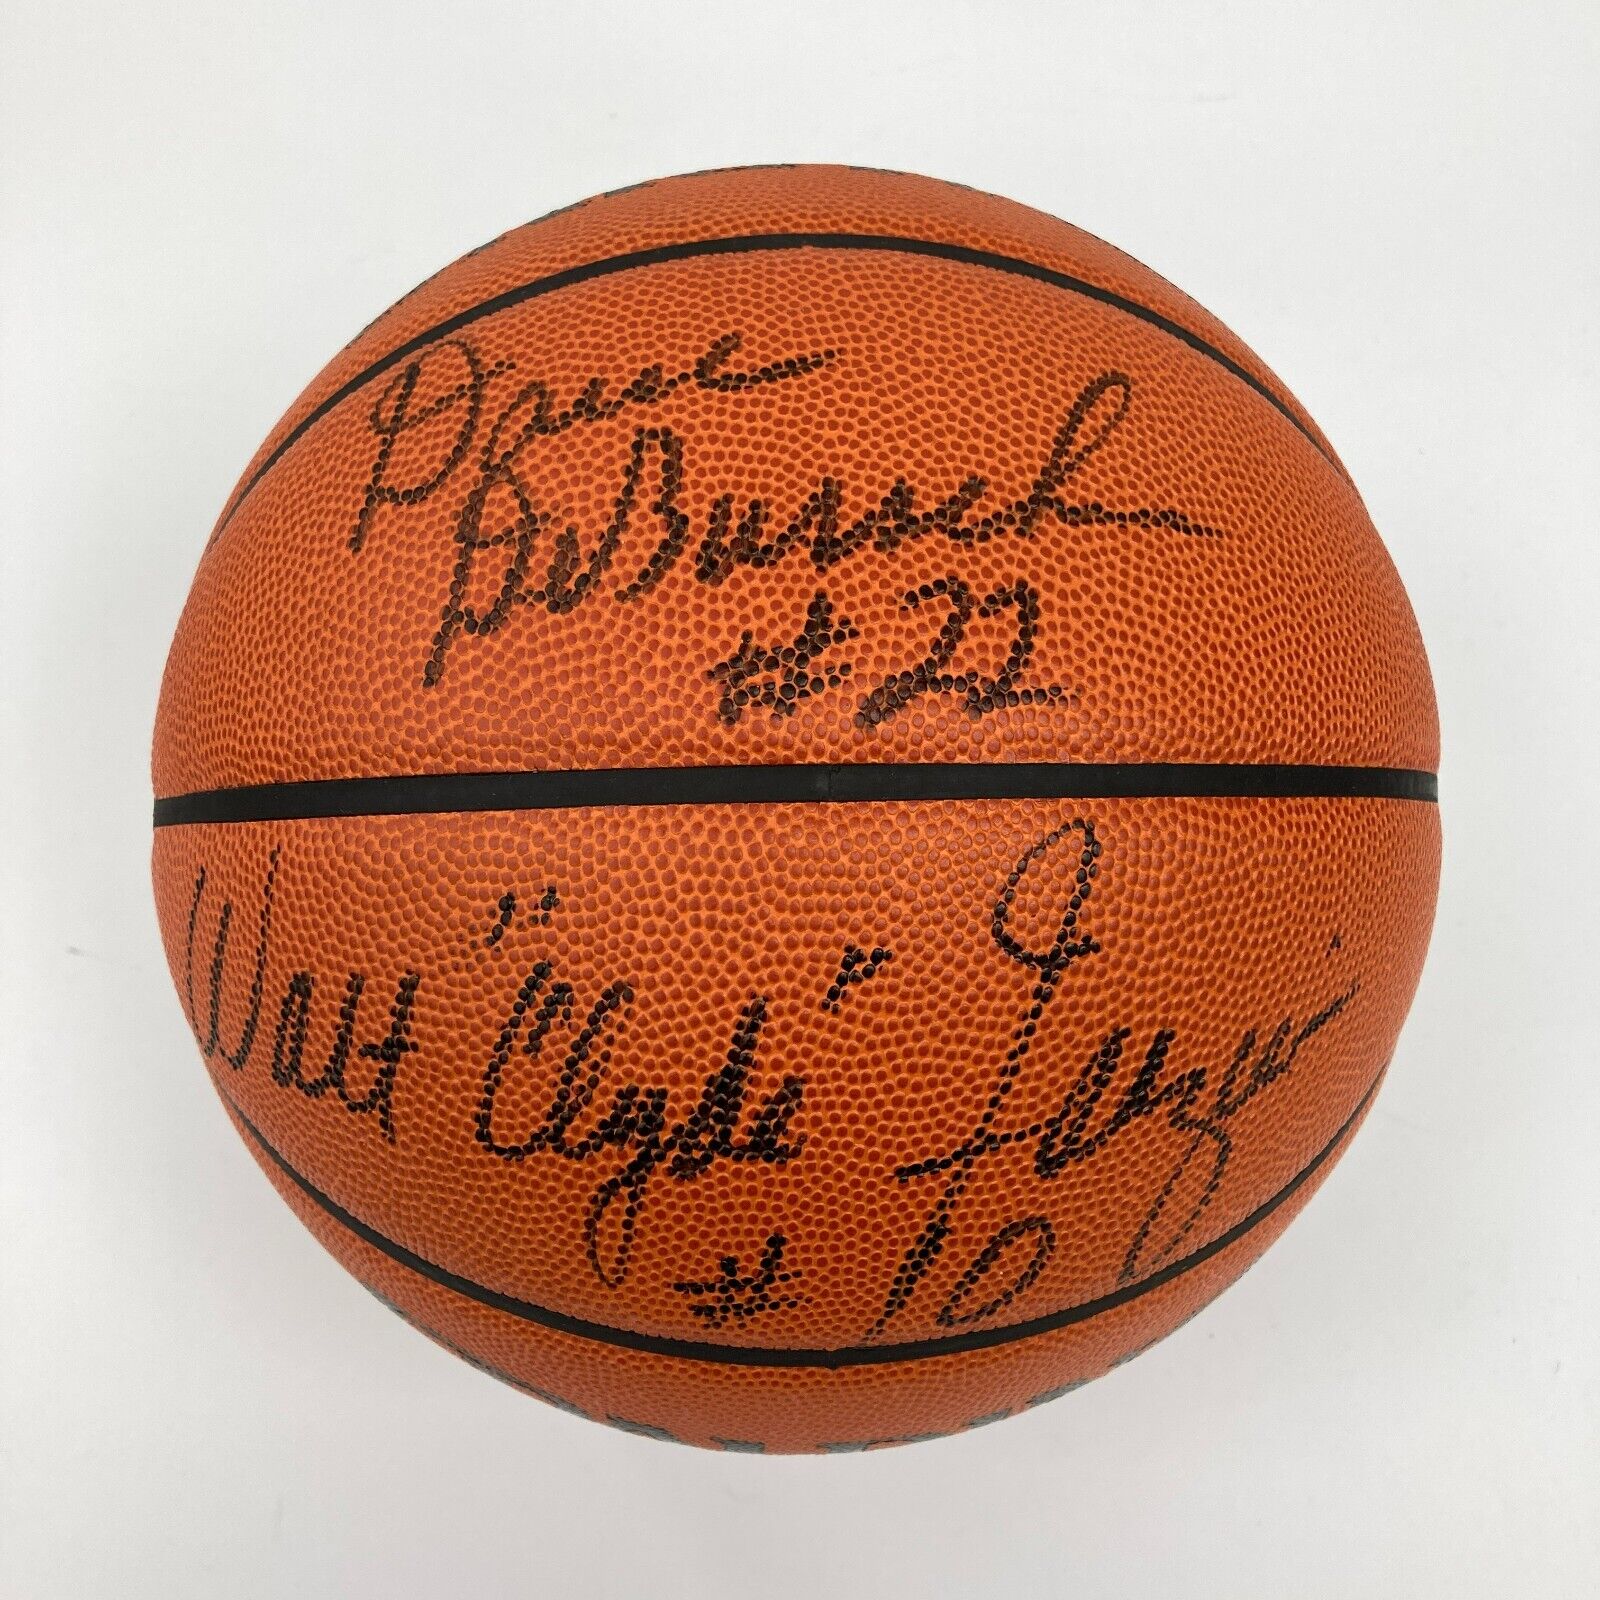 Dave
DeBusschere
#22
Walt "Clyde" Frazier
#10